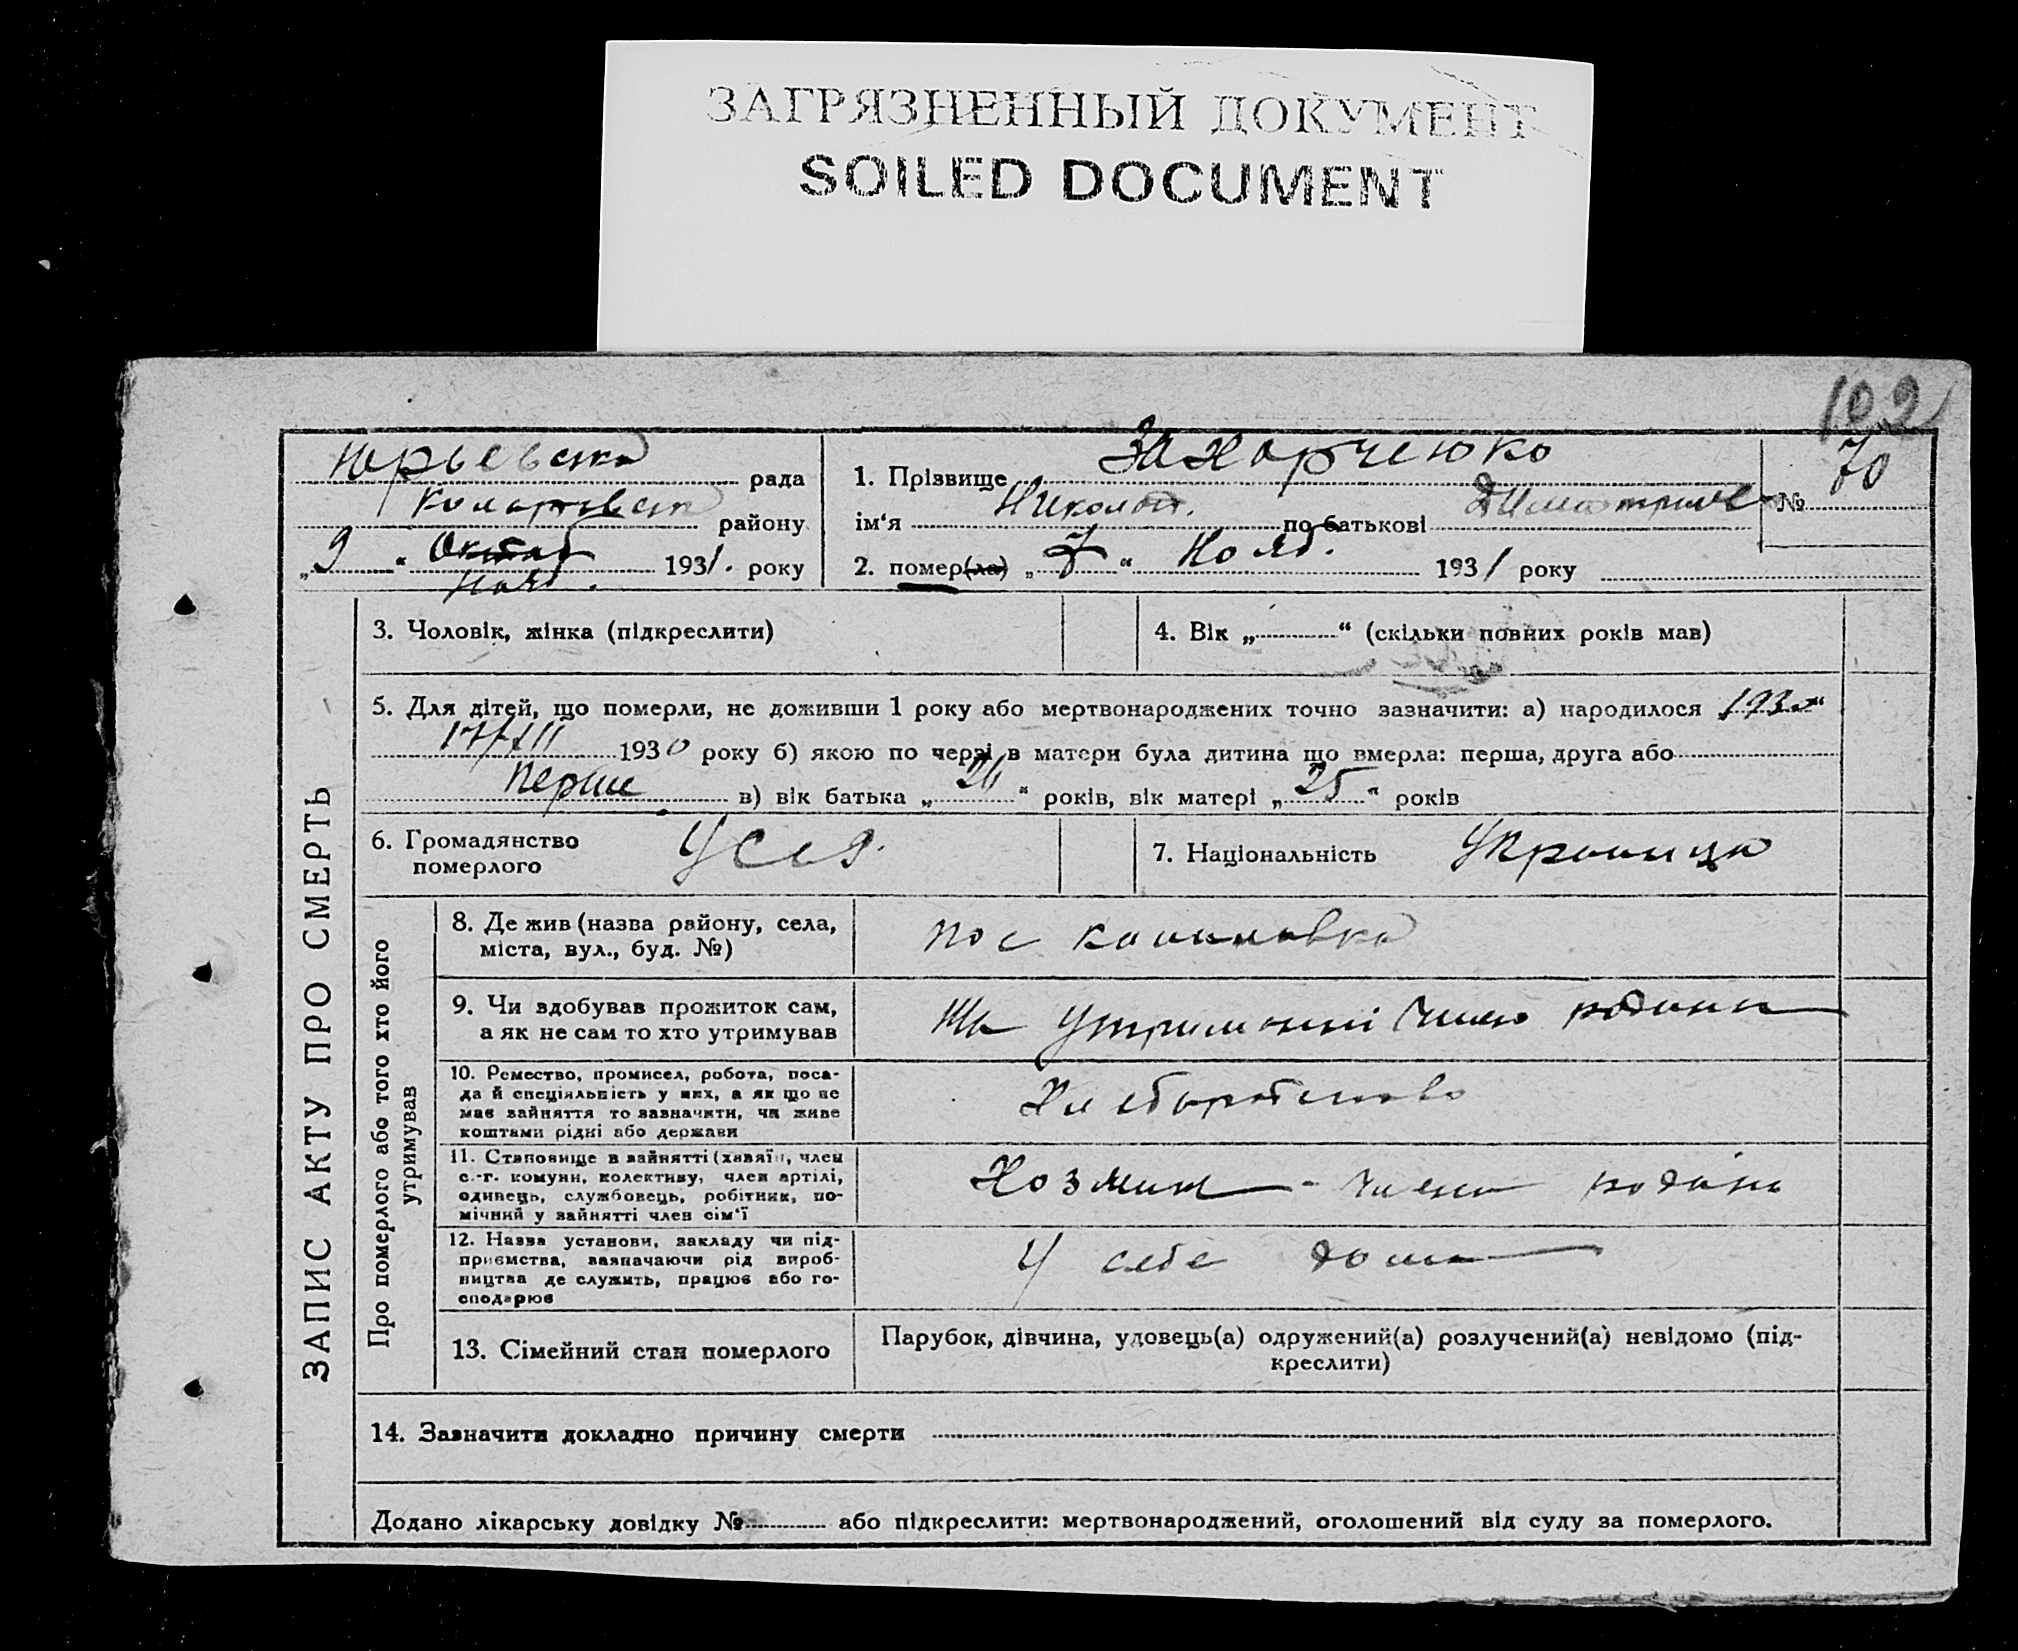 ЗАГРЯЗНЕННЫЙ ДОКУМЕНТ
SOILED DOCUMENT
102
Юрьевська рада
району
„9“ Октяб 1931. року
Нояб.
1. Прізвище Захарченко
ім‘я Николай. по батькові
№ 70
2. помер(ла) „7“ Нояб. 1931 року
ЗАПИС АКТУ ПРО СМЕРТЬ
3. Чоловік, жінка (підкреслити)
4. Вік „ “ (скільки повних років мав)
5. Для дітей, що померли, не доживши 1 року або мертвонароджених точно зазначити: а) народилося
17/XII 1930 року б) якою по черзі в матери була дитина що вмерла: перша, друга або
перше в) вік батька „ “ років, вік матері „25“ років
6. Громадянство
померлого
7. Національність
Про померлого або того хто його
утримував
8. Де жив (назва району, села,
міста, вул., буд. №)
пос
9. Чи здобував прожиток сам,
а як не сам то хто утримував
На утриманні член родини
10. Ремество, промисел, робота, поса-
да й спеціяльність у них, а як що не
має зайняття то зазначити, чи живе
коштами рідні або держави
Хлеборобство
11. Становище в зайнятті (хазяїн, член
с.-г. комуни, колективу, член артілі,
одинець, службовець, робітник, по-
мічний у зайнятті член сім‘ї
Хозяин - член родіни
12. Назва установи, закладу чи під-
приємства, зазначаючи рід вироб-
ництва де служить, працює або го-
сподарює
У себе дома
13. Сімейний стан померлого
Парубок, дівчина, удовець(а) одружений(а) розлучений(а) невідомо (під-
креслити)
14. Зазначити докладно причину смерти
Додано лікарську довідку № або підкреслити: мертвонароджений, оголошений від суду за померлого.